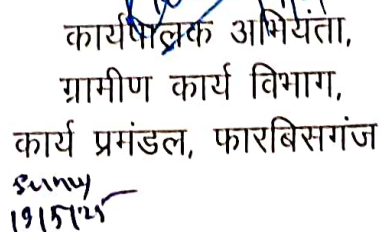 कार्यपालक अभियंता,
ग्रामीण कार्य विभाग,
कार्य प्रमंडल, फारबिसगंज
Sunny
19/5/25